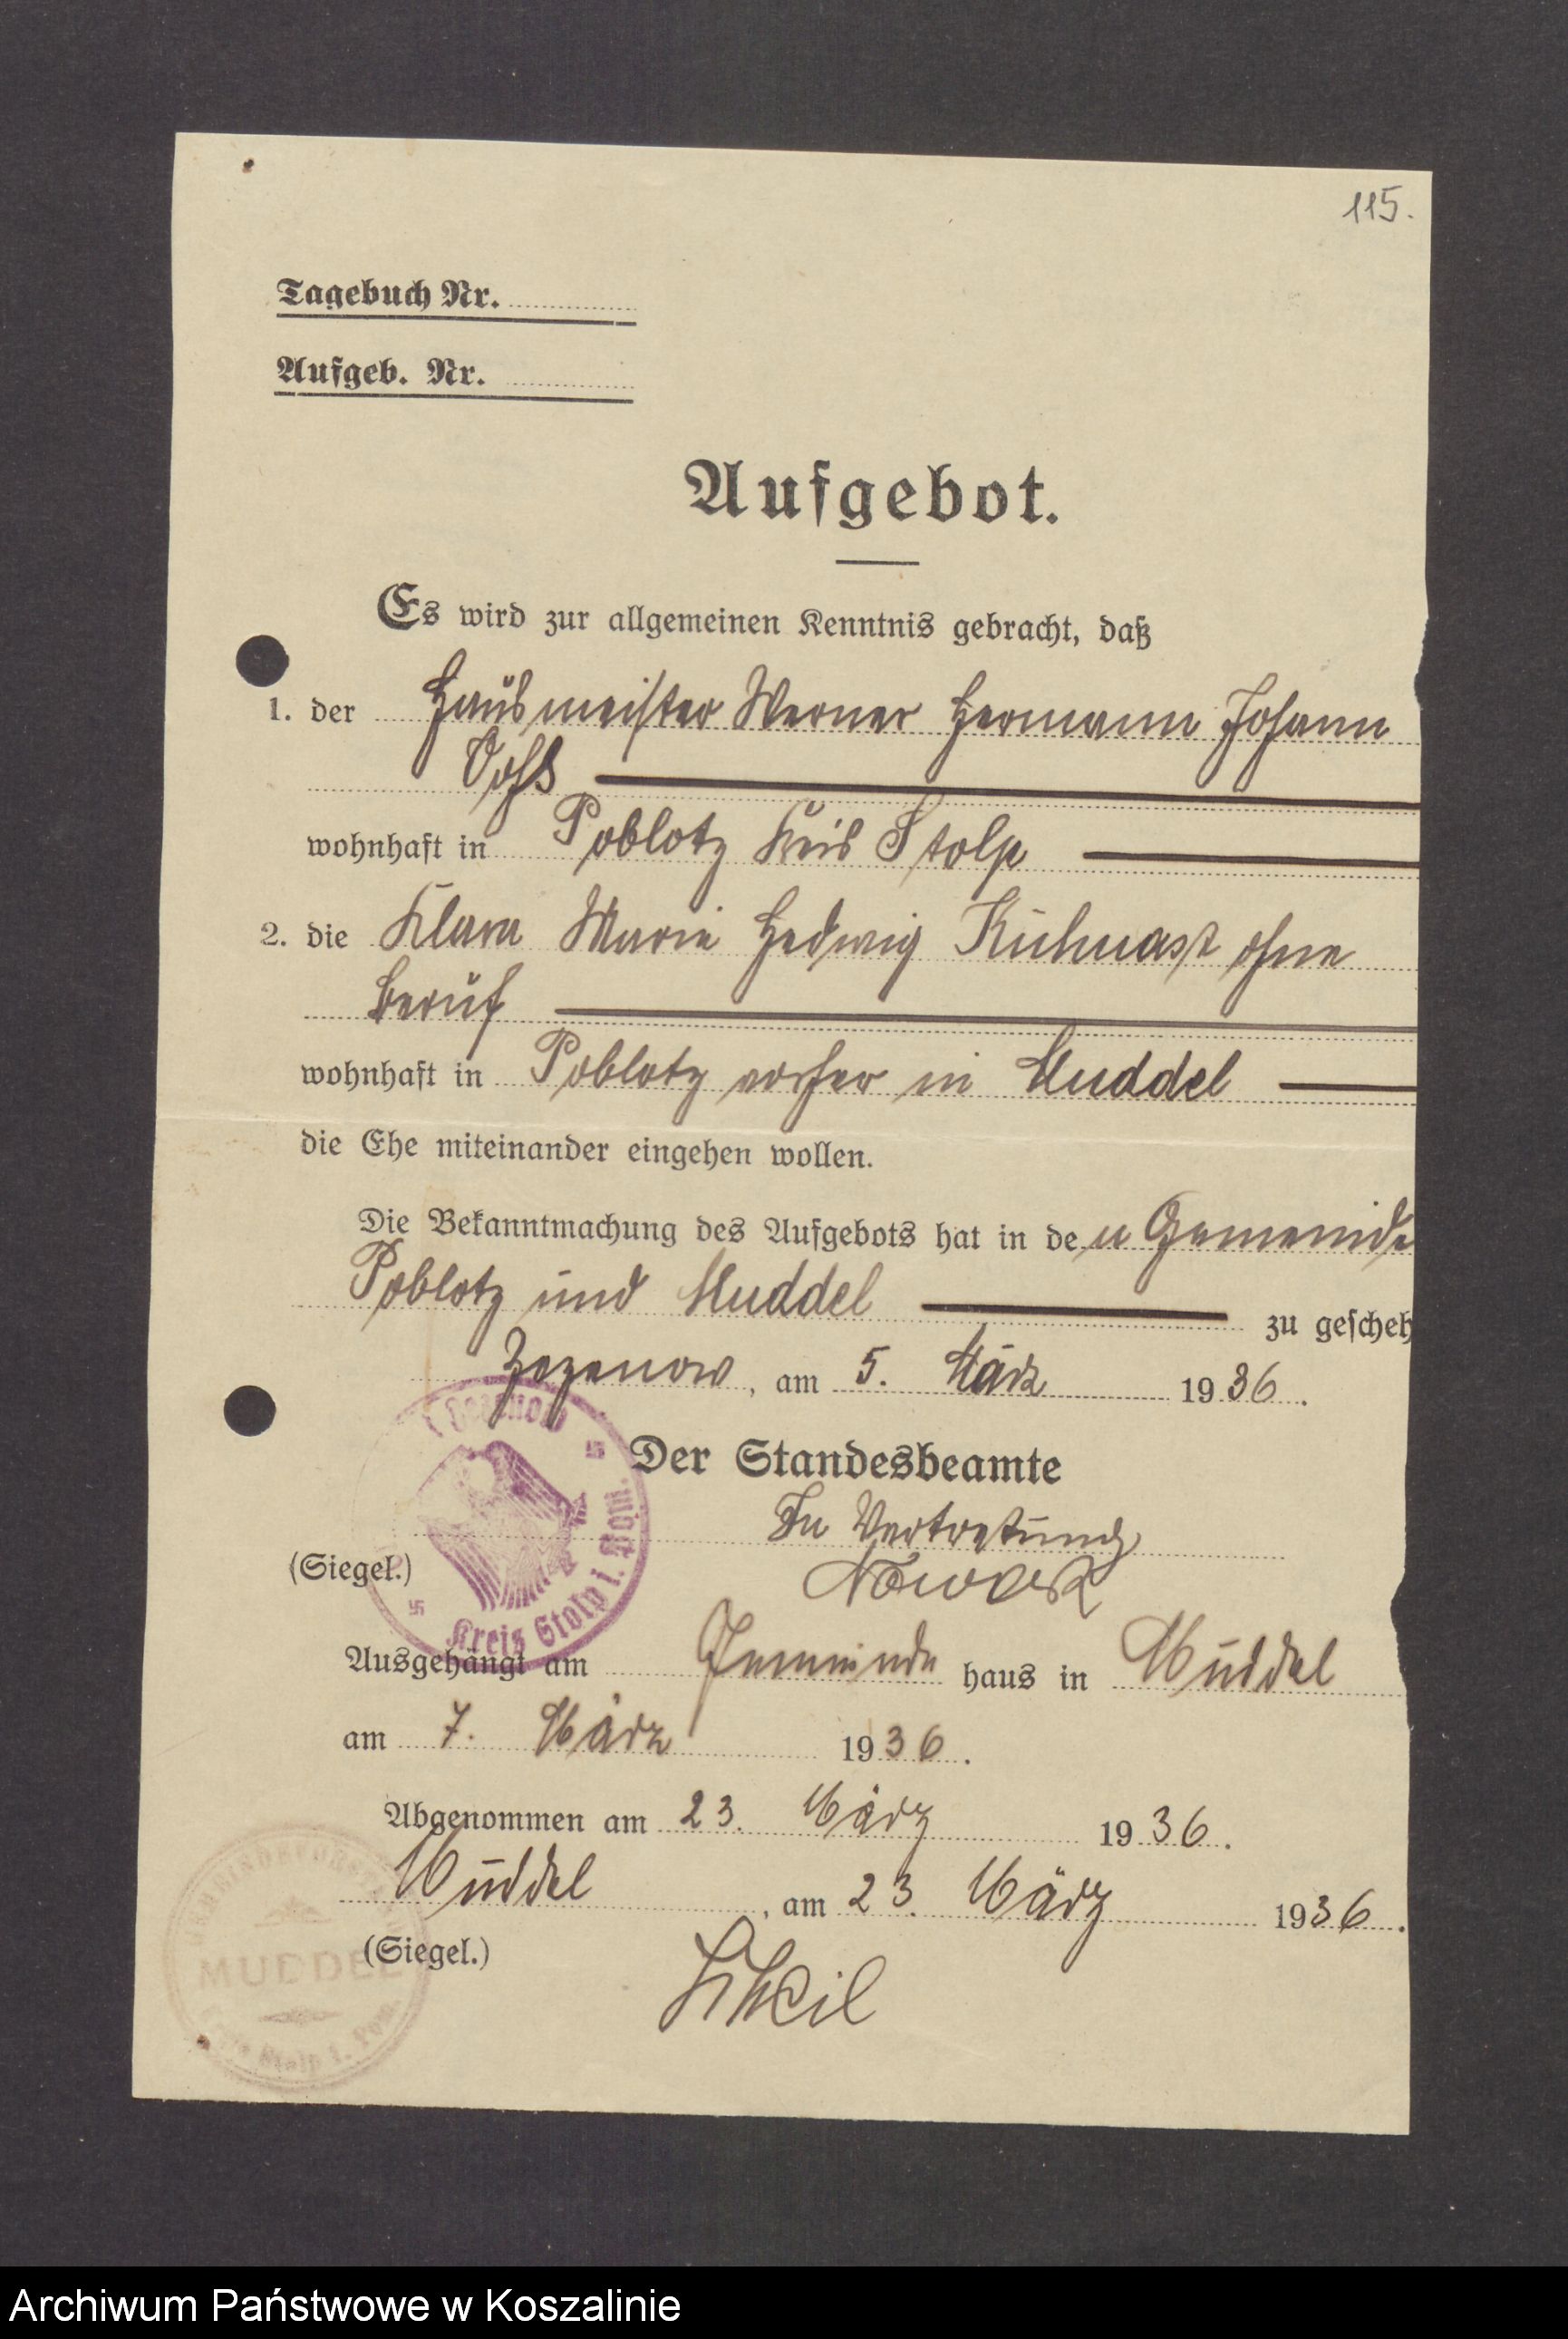 115.
Tagebuch Nr.
Aufgeb. Nr.
Aufgebot.
Es wird zur allgemeinen Kenntnis gebracht, daß
1. der Hausmeister Werner Hermann Johann
Voß
wohnhaft in Poblotz Kreis Stolp
2. die Klara Marie Hedwig Kühnast ohne
Beruf
wohnhaft in Poblotz vorher in Muddel
die Ehe miteinander eingehen wollen.
Die Bekanntmachung des Aufgebots hat in den Gemeinde
Poblotz und Muddel zu gescheh
Zezenow, am 5. März 1936.
Zezenow
Der Standesbeamte
In Vertretung
Nowack
(Siegel.)
Kreis Stolp i. Pom.
Ausgehängt am Gemeinde haus in Muddel
am 7. März 1936.
Abgenommen am 23. März 1936.
Muddel, am 23. März 1936.
(Siegel.)
MUDDEL
Kreis Stolp i. Pom.
Archiwum Państwowe w Koszalinie